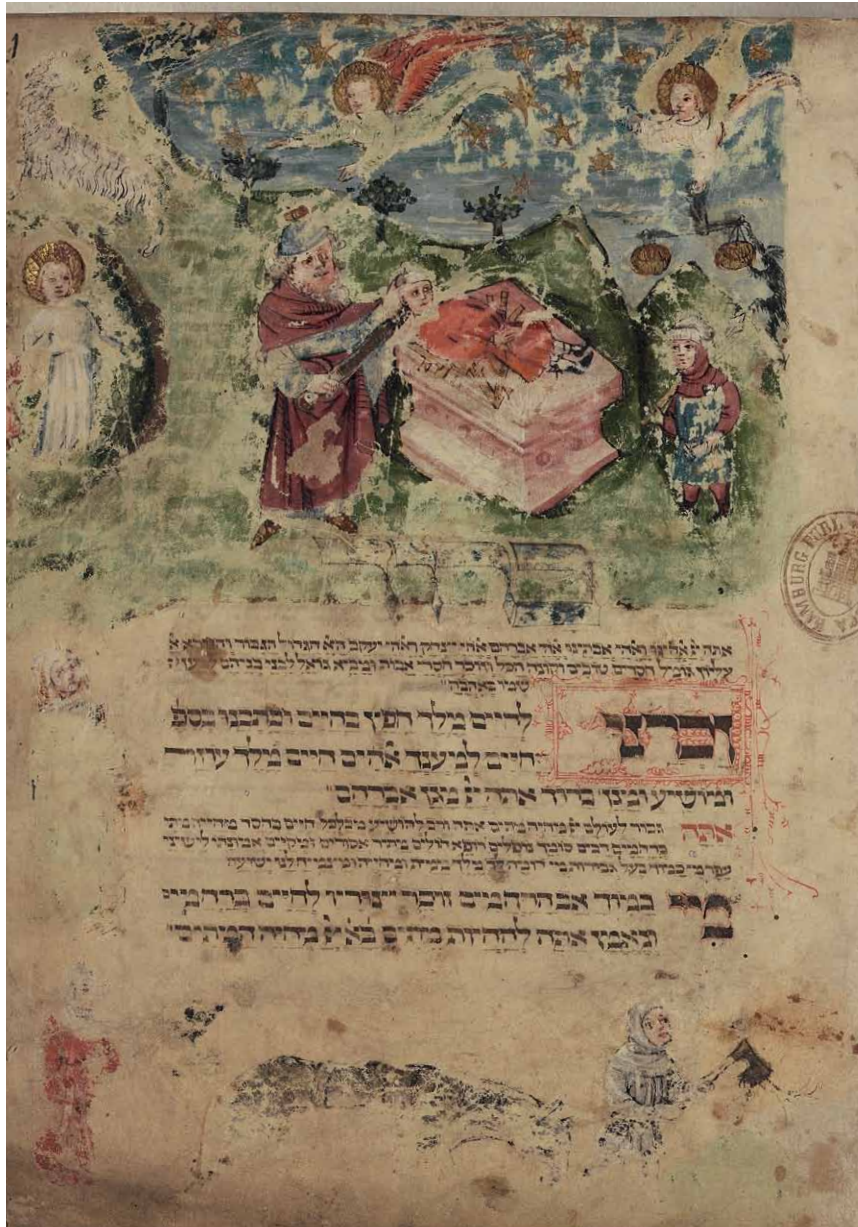 1
ברוך
אתה יי אלהינו ואלהי אבותינו אלהי אברהם אלהי יצחק ואלהי יעקב האל הגדול הגבור והנורא א
עליון גומיל חסדים טובים וקונה הכל וזוכר חסדי אבות ומביא גואל לבני בניהם למען
שמו באהבה
זכרנו לחיים מלך חפץ בחיים וכתבנו בספ
חיים למענך אלהים חיים מלך עוזר
ומושיע ומגן ברוך אתה יי מגן אברהם
אתה גבור לעולם יי מחיה מתים אתה ורב להושיע מכלכל חיים בחסד מחייה מתי
ברחמים רבים סומך נופלים רופא חולים מתיר אסורים ומקיים אמונתו לישיני
עפר מי כמוך בעל גבורות ומי דומה לך מלך ממית ומחייה ומצמיח לנו ישועה
מי כמוך אב הרחמים זוכר יצוריו לחיים ברחמי
ונאמן אתה להחיות מתים בא"י מחיה המתים
HAMBURG